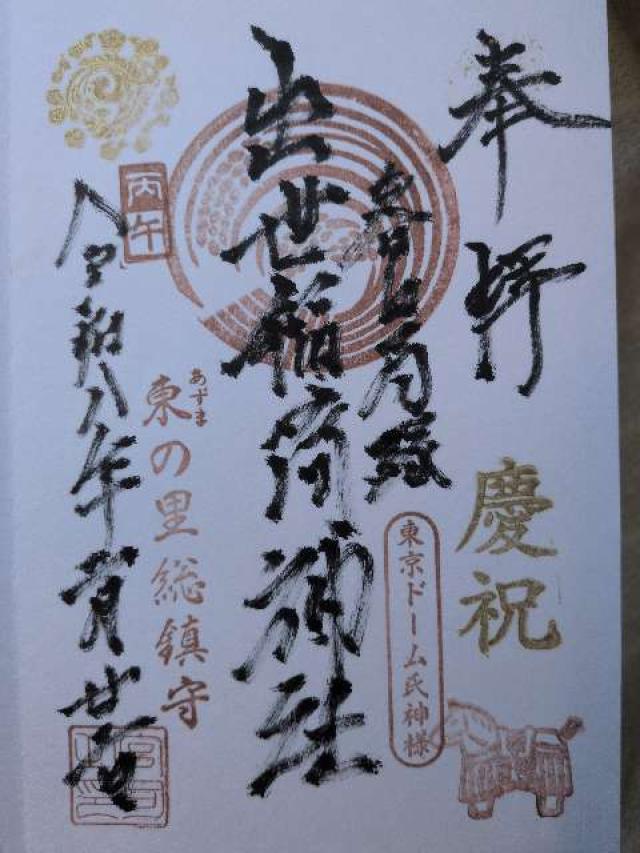 奉拝
慶祝
春日局縁
東京ドーム氏神様
出世稲荷神社
あずま
東の里総鎮守
丙午
令和八年